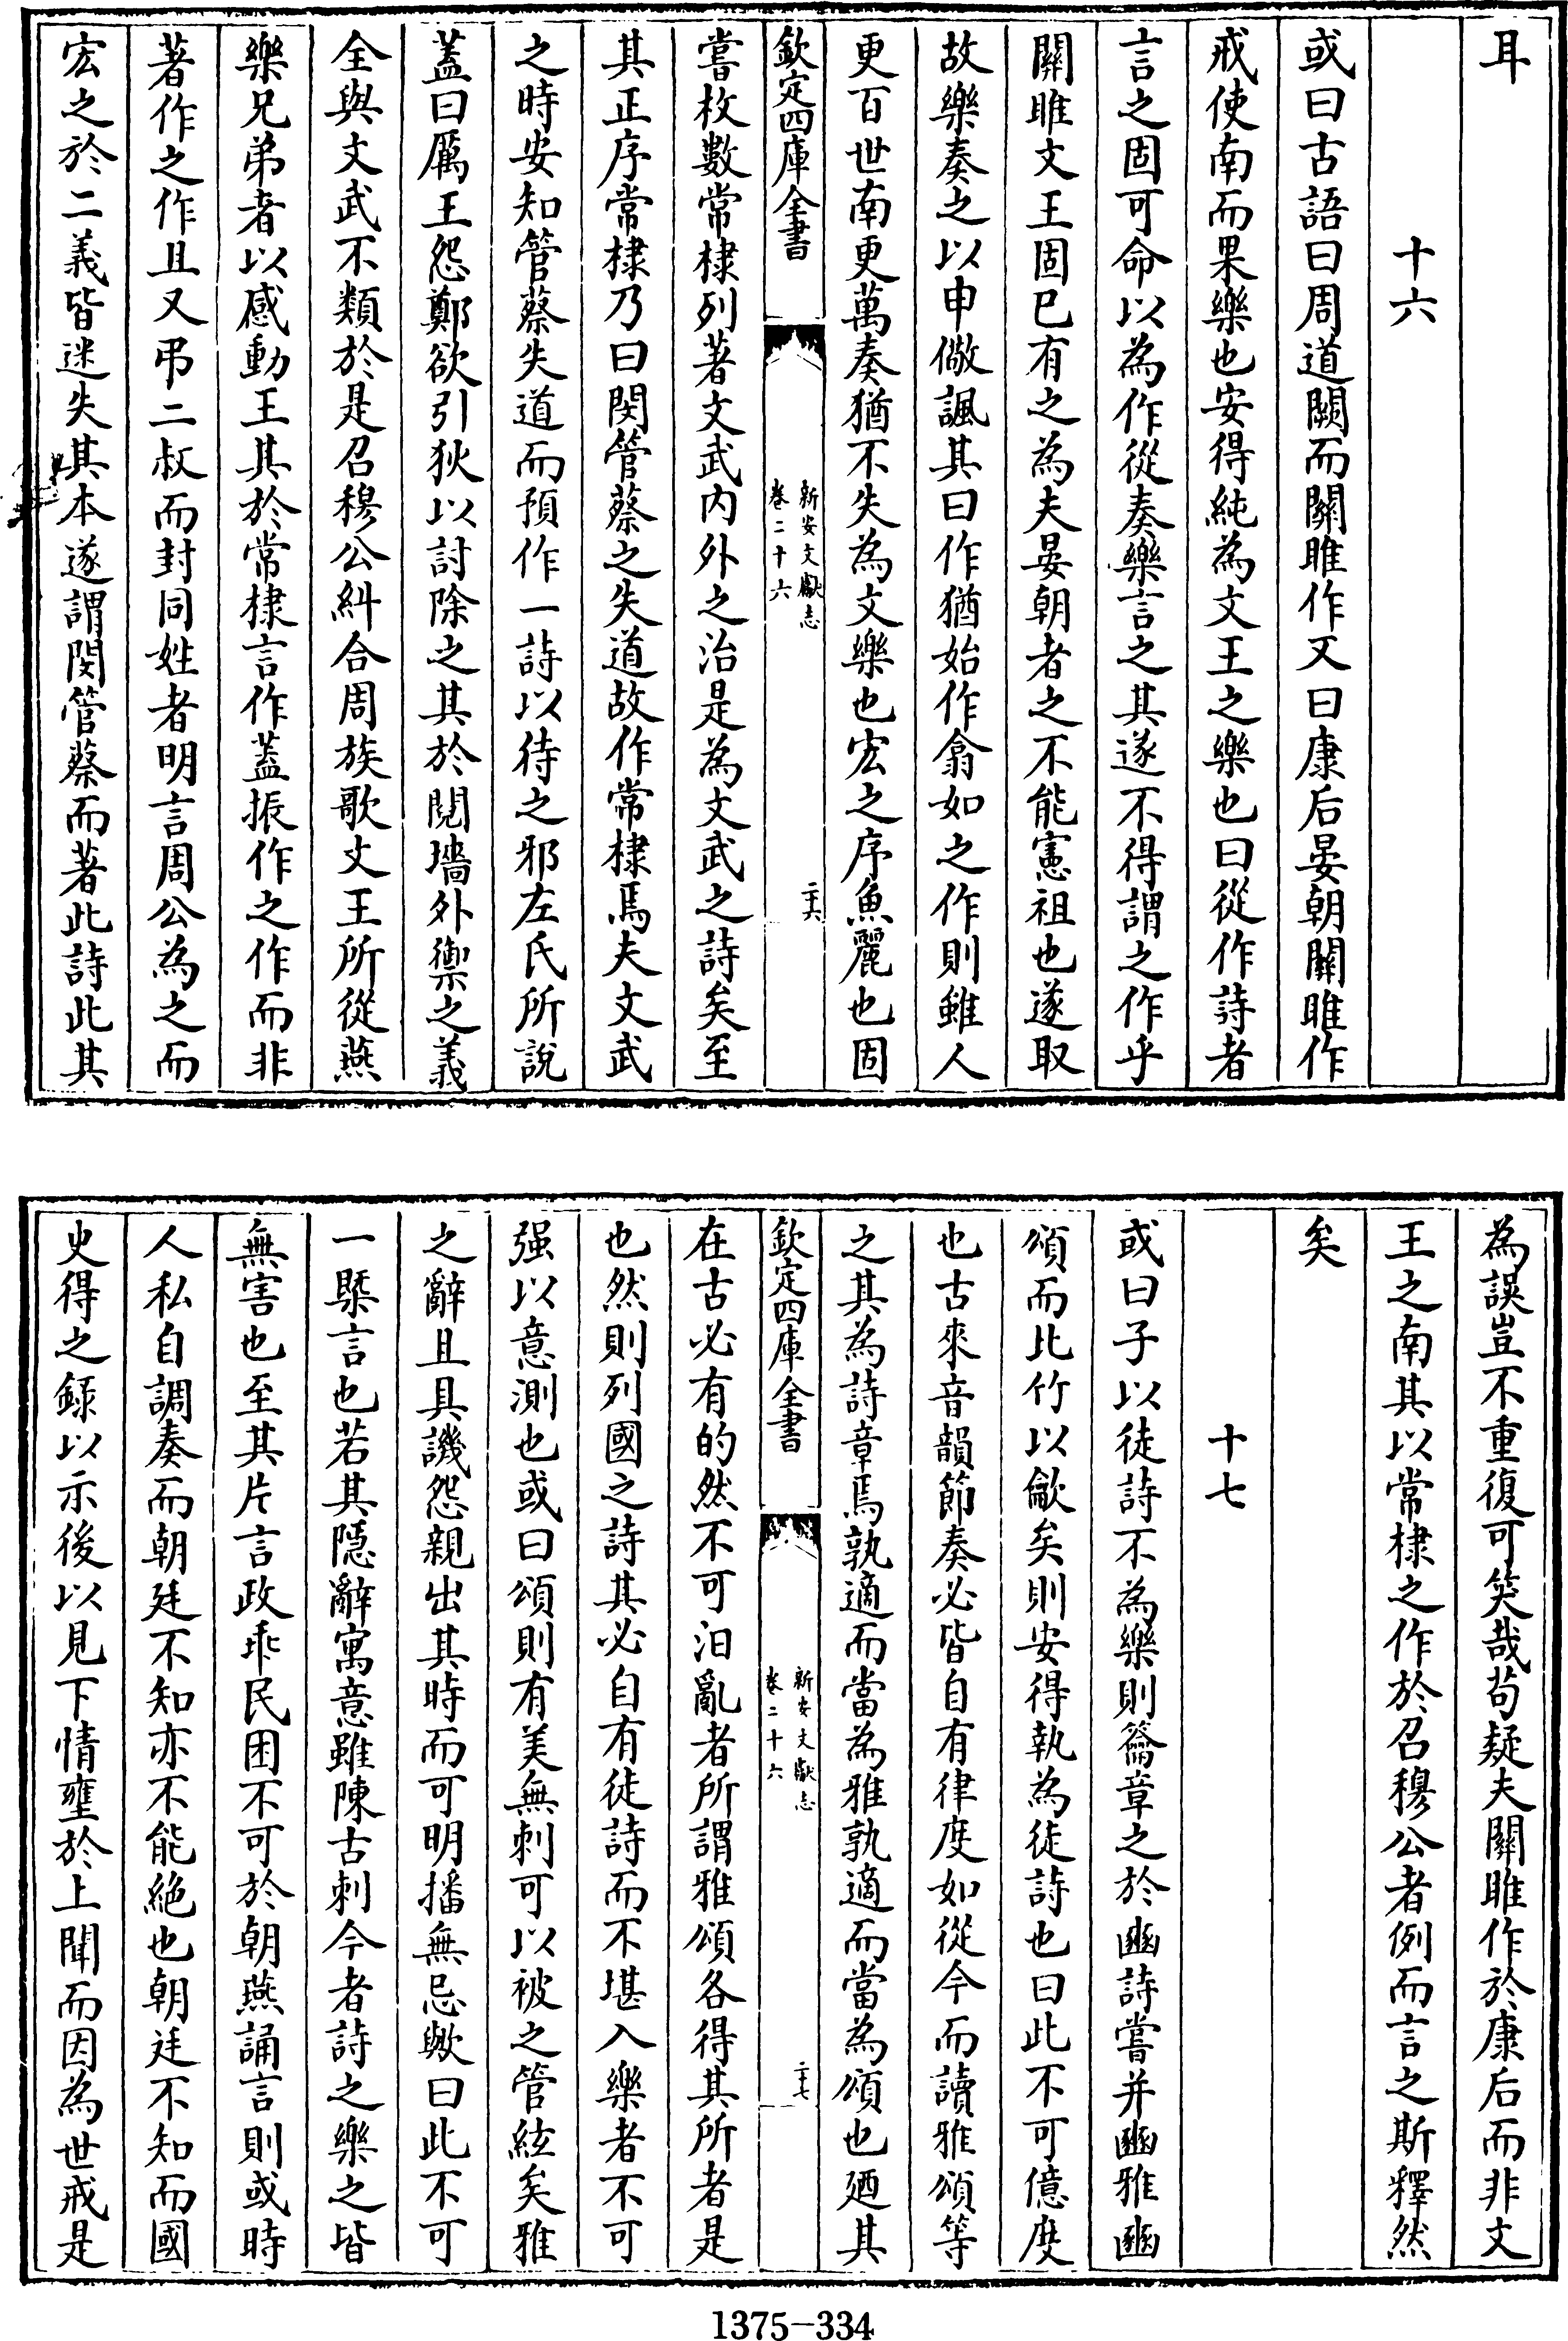 耳
十六
或曰古語曰周道闕而關雎作又曰康后晏朝關雎作
戒使南而果樂也安得純為文王之樂也曰從作詩者
言之固可命以為作從奏樂言之其遂不得謂之作乎
關雎文王固已有之為夫晏朝者之不能憲祖也遂取
故樂奏之以申儆諷其曰作猶始作翕如之作則雖人
更百世南更萬奏猶不失為文樂也宏之序魚麗也固
欽定四庫全書
新安文獻志
卷二十六
二十六
嘗枚數常棣列著文武內外之治是為文武之詩矣至
其正序常棣乃曰閔管蔡之失道故作常棣焉夫文武
之時安知管蔡失道而預作一詩以待之邪左氏所說
蓋曰厲王怨鄭欲引狄以討除之其於鬩墻外禦之義
全與文武不類於是召穆公糾合周族歌文王所從燕
樂兄弟者以感動王其於常棣言作蓋振作之作而非
著作之作且又弔二叔而封同姓者明言周公為之而
宏之於二義皆迷失其本遂謂閔管蔡而著此詩此其
為誤豈不重復可笑哉苟疑夫關雎作於康后而非文
王之南其以常棣之作於召穆公者例而言之斯釋然
矣
十七
或曰子以徒詩不為樂則籥章之於豳詩嘗并豳雅豳
頌而比竹以龡矣則安得執為徒詩也曰此不可億度
也古來音韻節奏必皆自有律度如從今而讀雅頌等
之其為詩章焉孰適而當為雅孰適而當為頌也廼其
欽定四庫全書
新安文獻志
卷二十六
二十七
在古必有的然不可汩亂者所謂雅頌各得其所者是
也然則列國之詩其必自有徒詩而不堪入樂者不可
强以意測也或曰頌則有美無刺可以被之管絃矣雅
之辭且具譏怨親出其時而可明播無忌歟曰此不可
一槩言也若其隱辭寓意雖陳古刺今者詩之樂之皆
無害也至其片言政乖民困不可於朝燕誦言則或時
人私自調奏而朝廷不知亦不能絶也朝廷不知而國
史得之録以示後以見下情壅於上聞而因為世戒是
1375-334